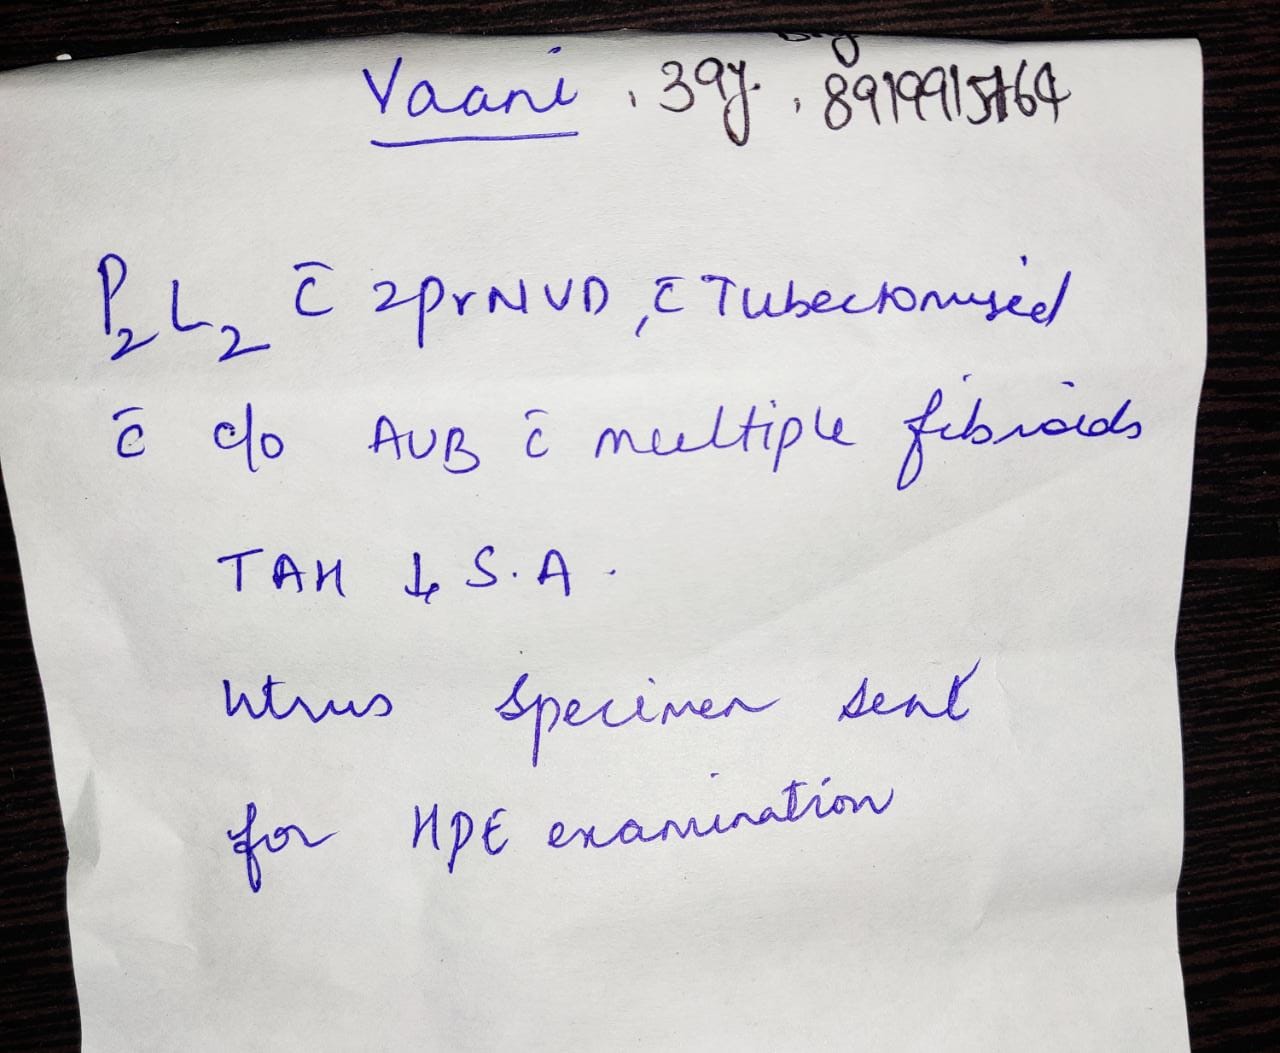 Vaani , 39y. ,
P2 L2 c̄ 2prNVD, c̄ Tubectomised
c̄ c/o AUB c̄ multiple fibroids
TAH ↓ S.A.
Utrus specimen sent
for HPE examination